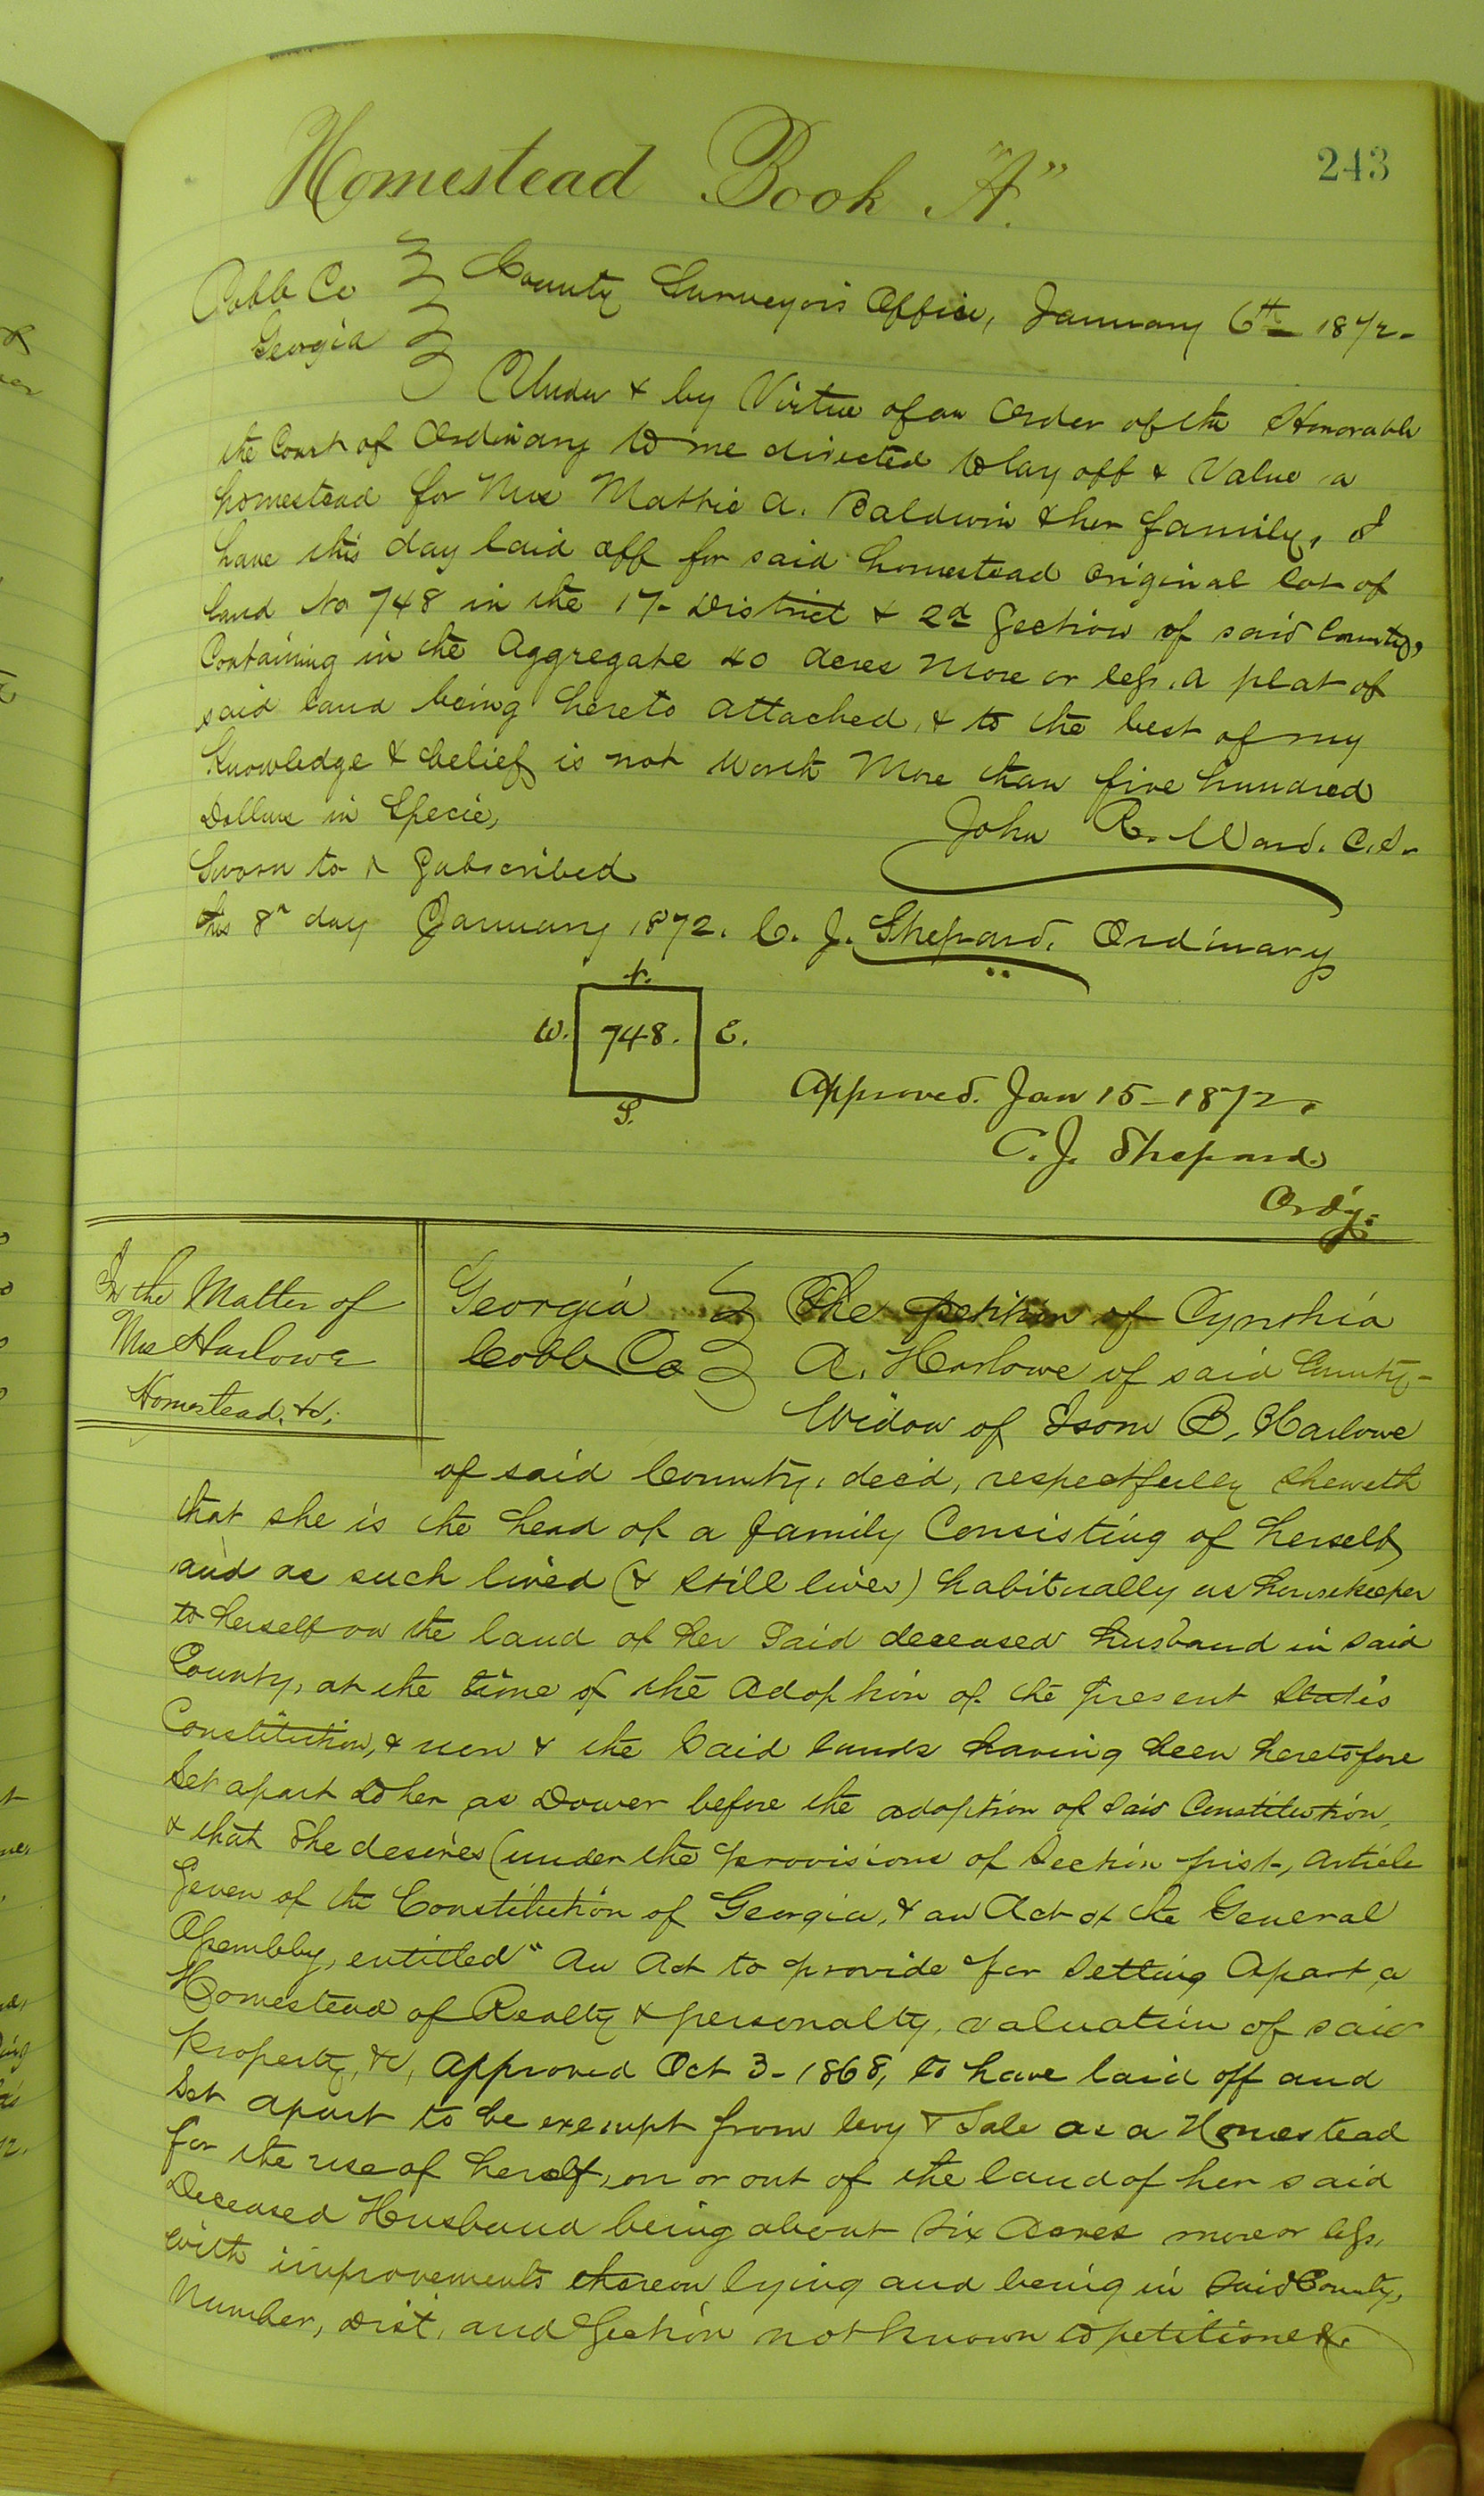 243
Homestead Book "A."
Cobb Co } County Surveyors Office, January 6th 1872.
Georgia }
Under & by Virtue of an Order of the Honorable
the Court of Ordinary to me directed to lay off & Value a
homestead for Mrs Mattie A. Baldwin & her family, I
have this day laid off for said homestead original lot of
land No 748 in the 17- District & 2d Section of said County,
Containing in the Aggregate 40 acres more or less, a plat of
said land being hereto attached, & to the best of my
Knowledge & belief is not worth More than five hundred
Dollars in Specie,
John R. Ward. C.S.
Sworn to & Subscribed
this 8th day January 1872. C. J. Shepard, Ordinary
N.
W. 748. E.
S.
Approved. Jan 15- 1872,
C. J. Shepard
Ordy.
In the Matter of
Mrs Harlowe
Homestead, &c;
Georgia } The petition of Cynthia
Cobb Co } A. Harlowe of said County-
Widow of Isom B. Harlowe
of said County, dec'd, respectfully sheweth
that she is the head of a family Consisting of herself
and as such lived (& still lives) habitually as housekeeper
to herself on the land of her said deceased husband in said
County, at the time of the adoption of the present State's
Constitution, & now & the said lands having been heretofore
set apart to her as Dower before the adoption of said Constitution,
& that she desires (under the provisions of Section first, Article
Seven of the Constitution of Georgia, & an Act of the General
Assembly, entitled "An Act to provide for Setting Apart a
Homestead of Realty & personalty, valuation of said
Property, &c, approved Oct 3- 1868, to have laid off and
Set apart to be exempt from levy & Sale as a Homestead
for the use of herself, on or out of the land of her said
Deceased Husband being about Six Acres more or less,
with improvements thereon lying and being in said County,
Number, Dist, and Section not known to petitioner.